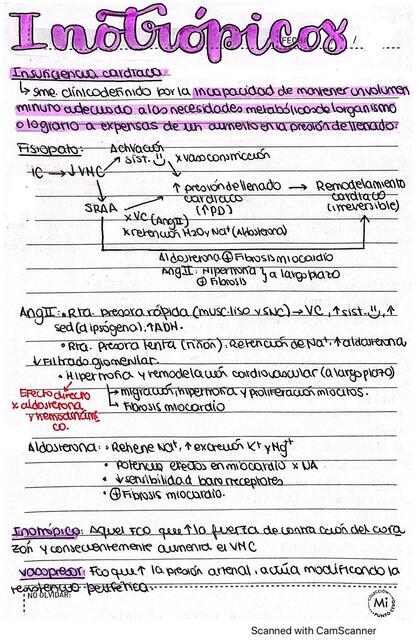 Inotrópicos
FECHA /
Insuficiencia cardiaca
↳ sme clínico definido por la incapacidad de mantener un volumen
minuto adecuado a las necesidades metabólicas del organismo
o lograrlo a expensas de un aumento en la presión de llenado.
Fisiopato: Activación
IC → ↓VMC → sist. x vasoconstricción
↑ presión de llenado → Remodelamiento
cardiaca cardiaco
SRAA → (↑PD) (irreversible)
x VC (Ang II)
x retención H2O y Na+ (Aldosterona)
Aldosterona ⊕ Fibrosis miocardio
Ang II: Hipertrofia y a largo plazo
⊕ Fibrosis
Ang II: • Rta. Presora rápida (musc. liso y SNC) → VC, ↑ sist. , ↑
sed (dipsógena), ↑ADH.
• Rta. Presora lenta (riñón). Retención de Na+, ↑ aldosterona,
↓ Filtrado glomerular.
• Hipertrofia y remodelación cardiovascular (a largo plazo)
Efecto directo ↳ migración, hipertrofia y proliferación miocitos.
x aldosterona ↳ Fibrosis miocardio
y hemodinámi
co.
Aldosterona: • Retiene Na+, ↑ excreción K+ y Mg++
• Potencia efectos en miocardio x NA
• ↓ sensibilidad baroreceptores
• ⊕ Fibrosis miocardio.
Inotrópico: Aquel Fco que ↑ la fuerza de contracción del cora
zón y consecuentemente aumenta el VMC
Vasopresor: Fco que ↑ la presión arterial, actúa modificando la
resistencia periférica.
NO OLVIDAR:
COLECCIÓN
Mi
PUNTO
Scanned with CamScanner